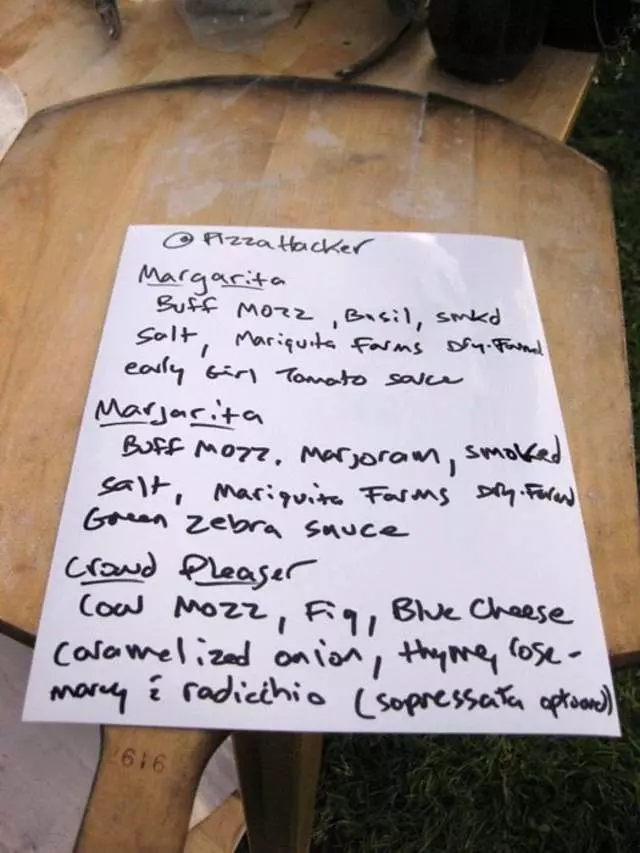 @PizzaHacker
Margarita
Buff Mozz, Basil, smkd
Salt, Mariquita Farms Dry-Farmd
early Girl Tomato sauce
Marjarita
Buff Mozz, Marjoram, smoked
salt, Mariquita Farms Dry-Farmd
Green Zebra sauce
Crowd Pleaser
Cow Mozz, Fig, Blue Cheese
caramelized onion, thyme, rose-
mary & radicchio (sopressata optional)
616